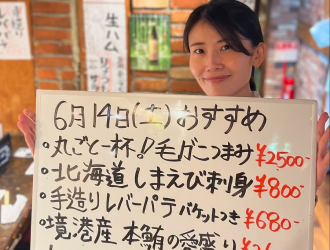 生ハム
6月14日(土)おすすめ
・丸ごと一杯!毛がこつまみ ¥2500-
・北海道 しまえび刺身 ¥800-
・手造りレバーパテ バケットつき ¥680-
・境港産 本鮪の愛盛り